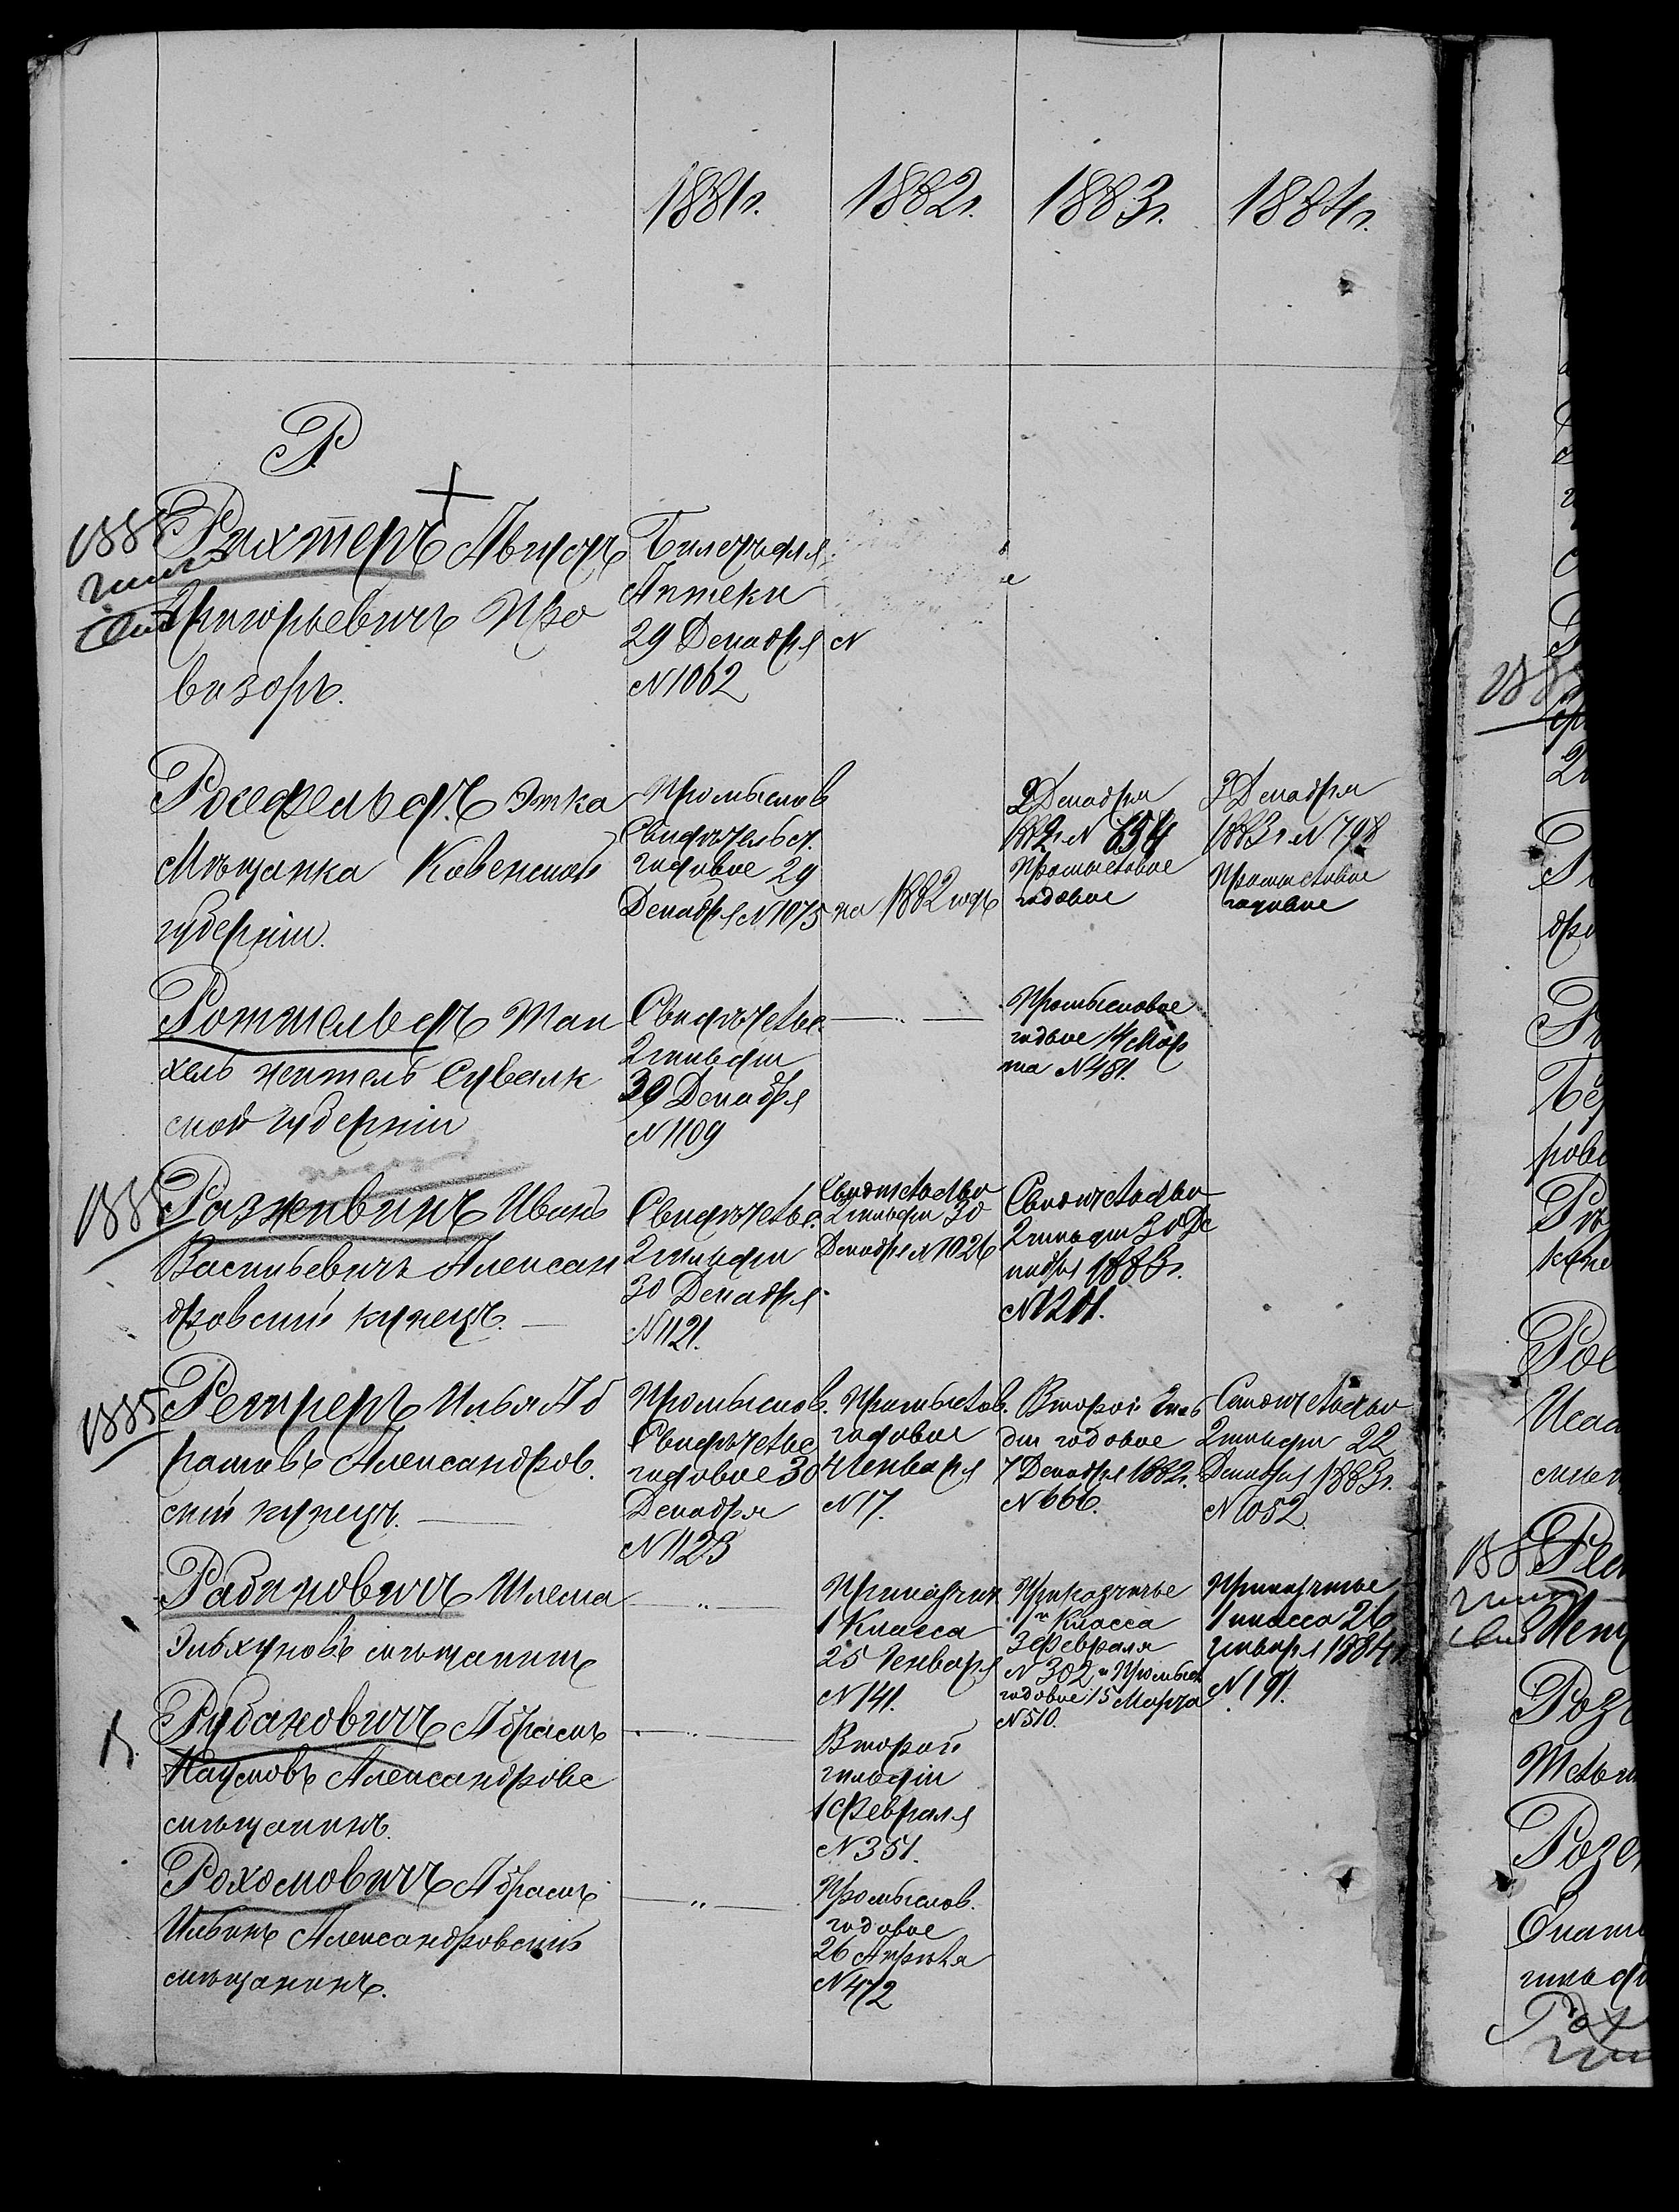 1881г. 1882г. 1883г. 1884г.
Р
Рихтеръ Августъ
Григорьевичъ Про
визоръ.
Билетъ для
Аптеки
29 Декабря
N 1062
N
Розефельдъ Этка
Мѣщанка Ковенской
губерніи.
Промыслов
Свидѣтельст.
годовое 29
Декабря N 1075 на 1882 годъ
2 Декабря
1882г N 654
Промысловое
годовое
3 Декабря
1883г N 798
Промысловое
годовое
Ротшельдъ Ман
хель житель Сувалк
ской губерніи
Свидѣтельс.
2 гильдіи
30 Декабря
N 1109
— „ —
Промысловое
годовое 14 Мар
та N 481.
1885
Разживинъ Иванъ
Васильевичъ Алексан
дровский купецъ. —
Свидѣтельс.
2 гильдіи
30 Декабря
N 1121.
Свидѣтельство
2 гильдіи 30
Декабря N 1026
Свидѣтельство
2 гильдіи 30 Де
кабря 1883г.
N 1201.
1885
Ретреръ Илья Аб
рамовъ Александров.
скій купецъ. —
Промыслов.
Свидѣтельс
годовое 30
Декабря
N 1123
Промыслов.
годовое
4 Генваря
N 17.
Второй Гиль
діи годовое
7 Декабря 1882г.
N 666.
Свидѣтельство
2 гильдіи 22
Декабря 1883г.
N 1052.
Рабиновичъ Шлема
Эльхуновъ мѣщанинъ
— „ —
Приказчик
1 Класса
25 Генваря
N 141.
Приказчичье
1го Класса
3 Февраля
N 302, и Промысл
годовое 15 Марта
N 510.
Приказчичье
1 класса 26
Генваря 1884г.
N 191.
Рубановичъ Абрамъ
Наумовъ Александровс
мѣщанинъ.
— „ —
Второй
гильдіи
1 Февраля
N 351.
Рохомовичъ Абрамъ
Ильинъ Александровский
мѣщанинъ.
— „ —
Промыслов.
годовое
26 Апрѣля
N 472